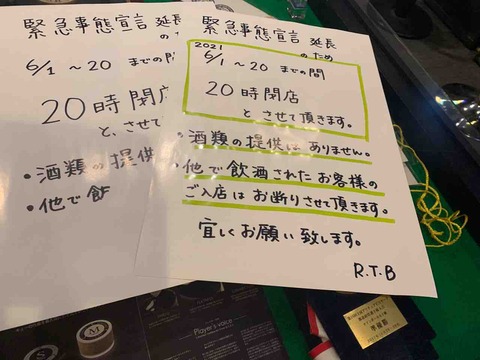 緊急事態宣言 延長
のため
2021
6/1 ~20 までの間
20時閉店
とさせて頂きます。
・酒類の提供はありません。
・他で飲酒されたお客様の
ご入店はお断りさせて頂きます。
宜しくお願い致します。
R.T.B
緊急事態宣言 延長
の
6/1 ~20 までの
20時閉店
と、させて
・酒類の提供
・他で飲
Player's voice
S
M
準優勝